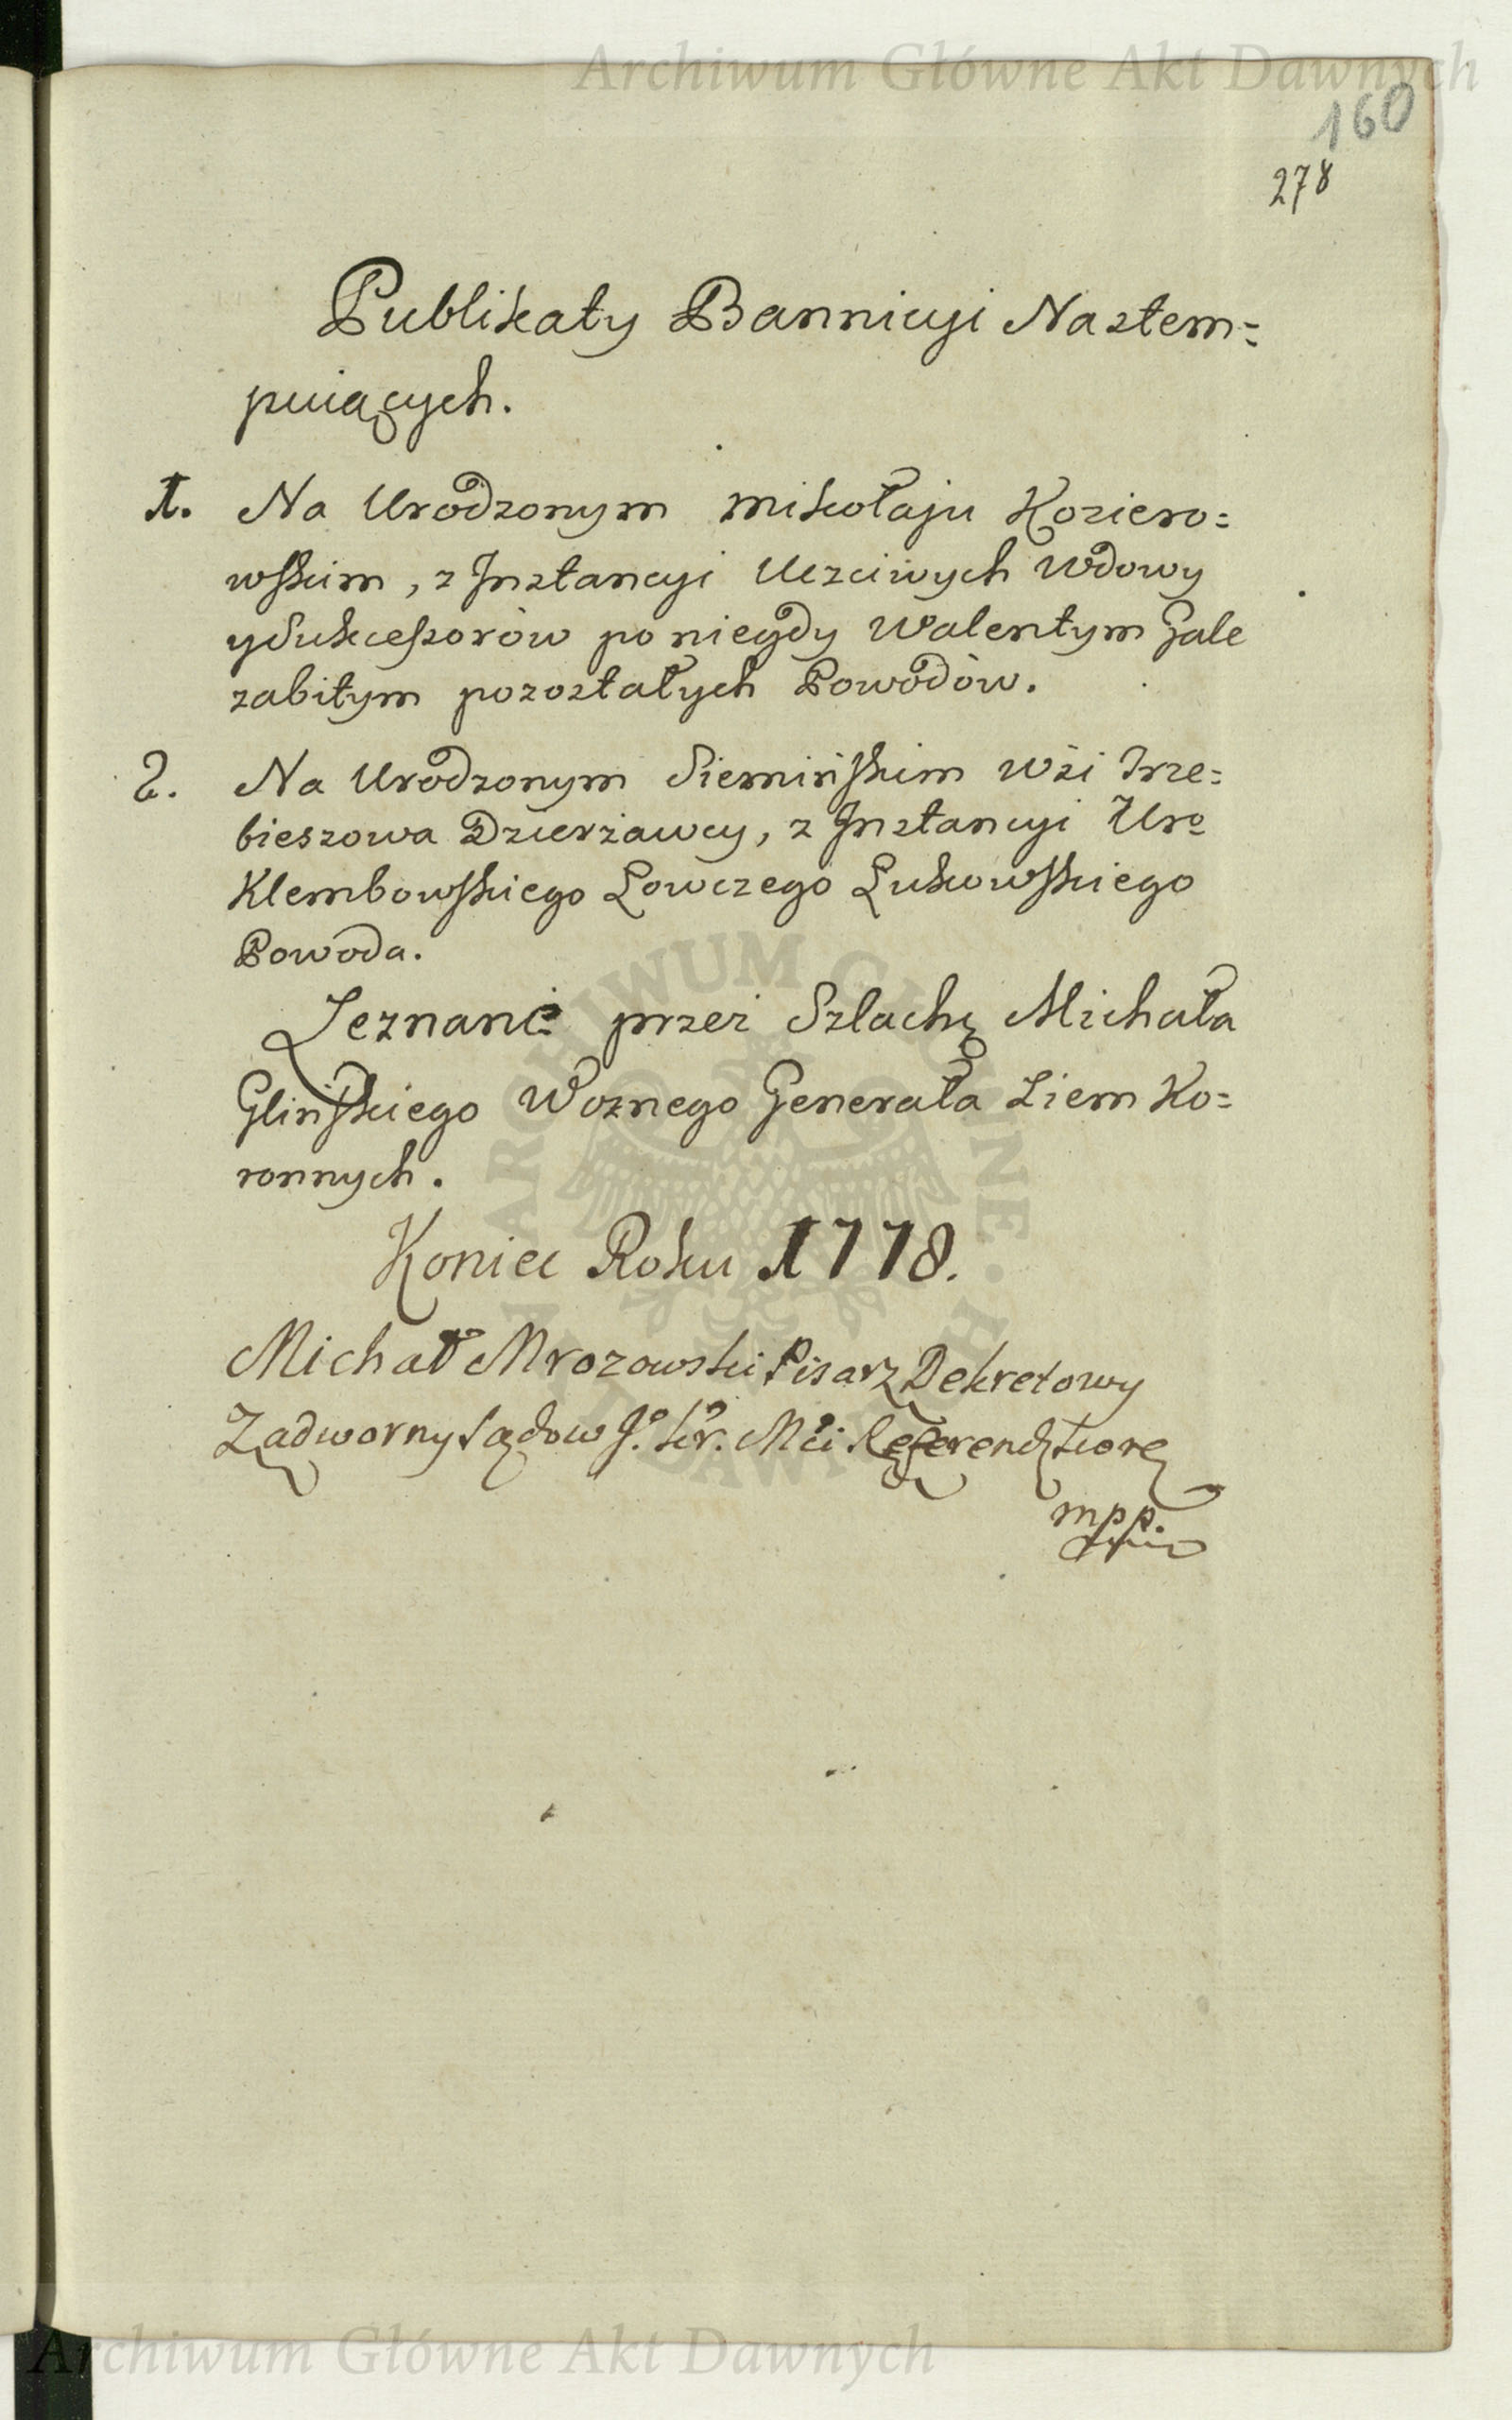 Archiwum Główne Akt Dawnych
160
278
Publikaty Bannicyi Nastem=
puiących.
1. Na Urodzonym Mikołaju Koziero=
wskim, z Instancyi Uczciwych Wdowy
y Sukcessorów po niegdy Walentym Gale
zabitym pozostałych Powodów.
2. Na Urodzonym Siemińskim Wśi Trze=
bieszowa Dzierżawcy, z Instancyi Uro
Klembowskiego Łowczego Łukowskiego
Powoda.
Zeznane przez Szlachę Michała
Glińskiego Woznego Generała Ziem Ko=
ronnych.
Koniec Roku 1778.
Michał Mrozowski Pisarz Dekretowy
Zadworny Sądow J. Kr. Mci Referendtwore
mpp.
ARCHIWUM GŁÓWNE AKT DAWNYCH
Archiwum Główne Akt Dawnych